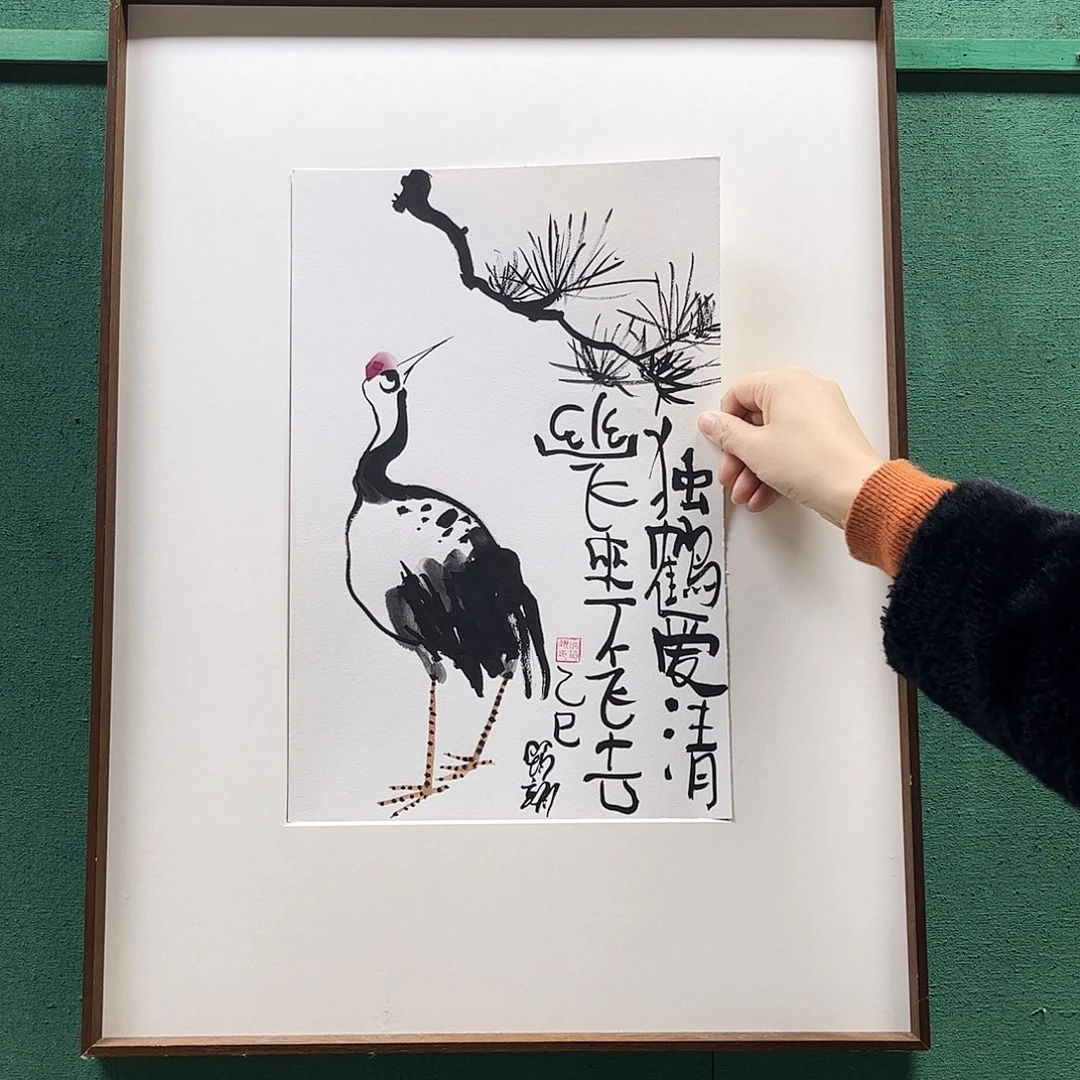 独鹤爱清
幽飞来不飞去
乙巳